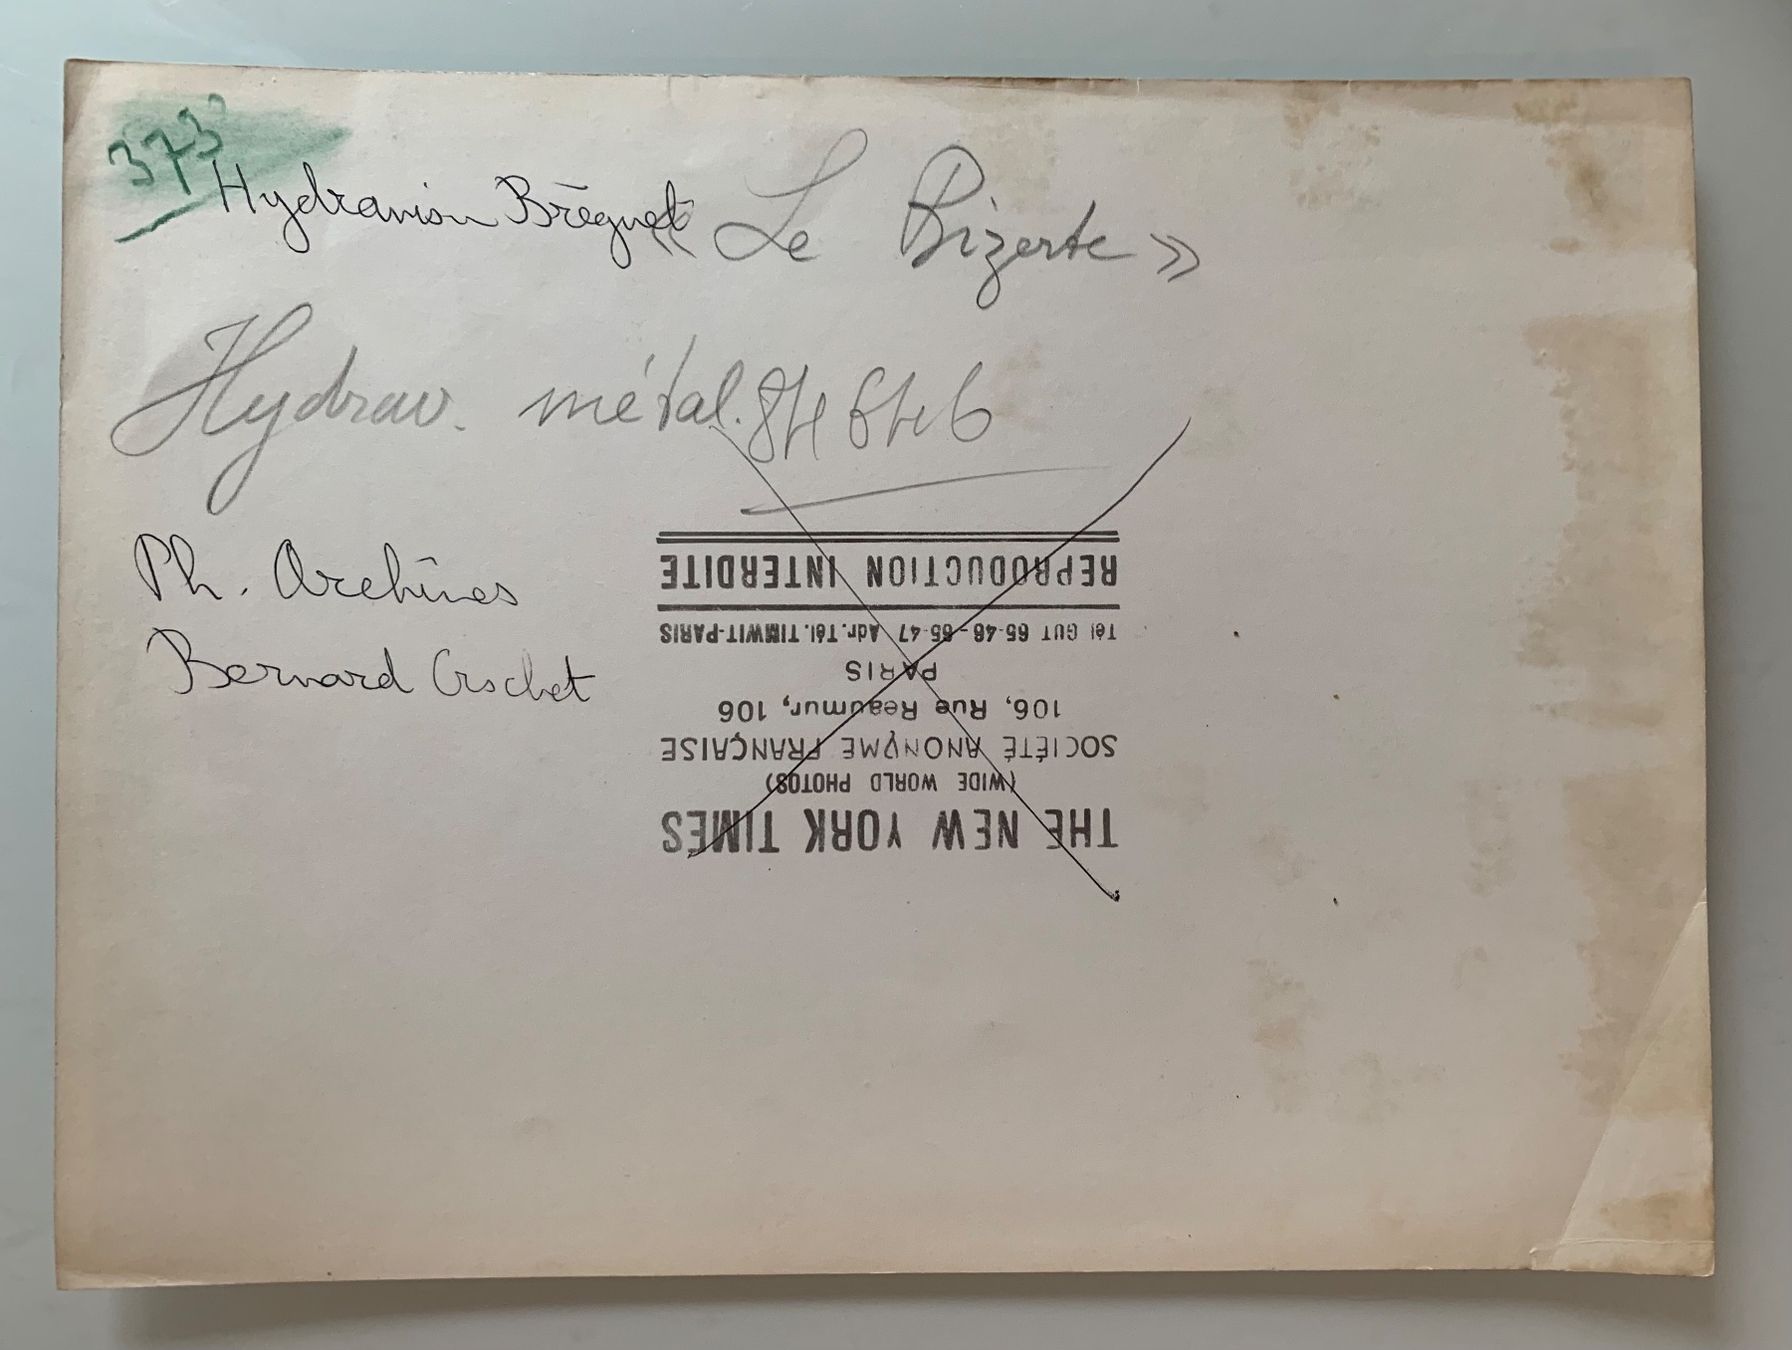 373
Hydravion Bréguet « Le Bizerte »
Hydrav. métal.
Ph. Archives
Bernard Crochet
THE NEW YORK TIMES
(WIDE WORLD PHOTOS)
SOCIÉTÉ ANONYME FRANÇAISE
106, Rue Reaumur, 106
PARIS
Tél GUT 65-46-65-47 Adr. Tél. TIMWIT-PARIS
REPRODUCTION INTERDITE